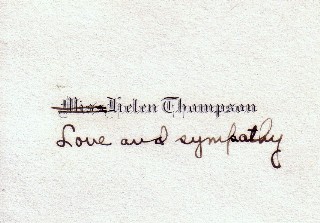 Miss Helen Thompson
Love and sympathy